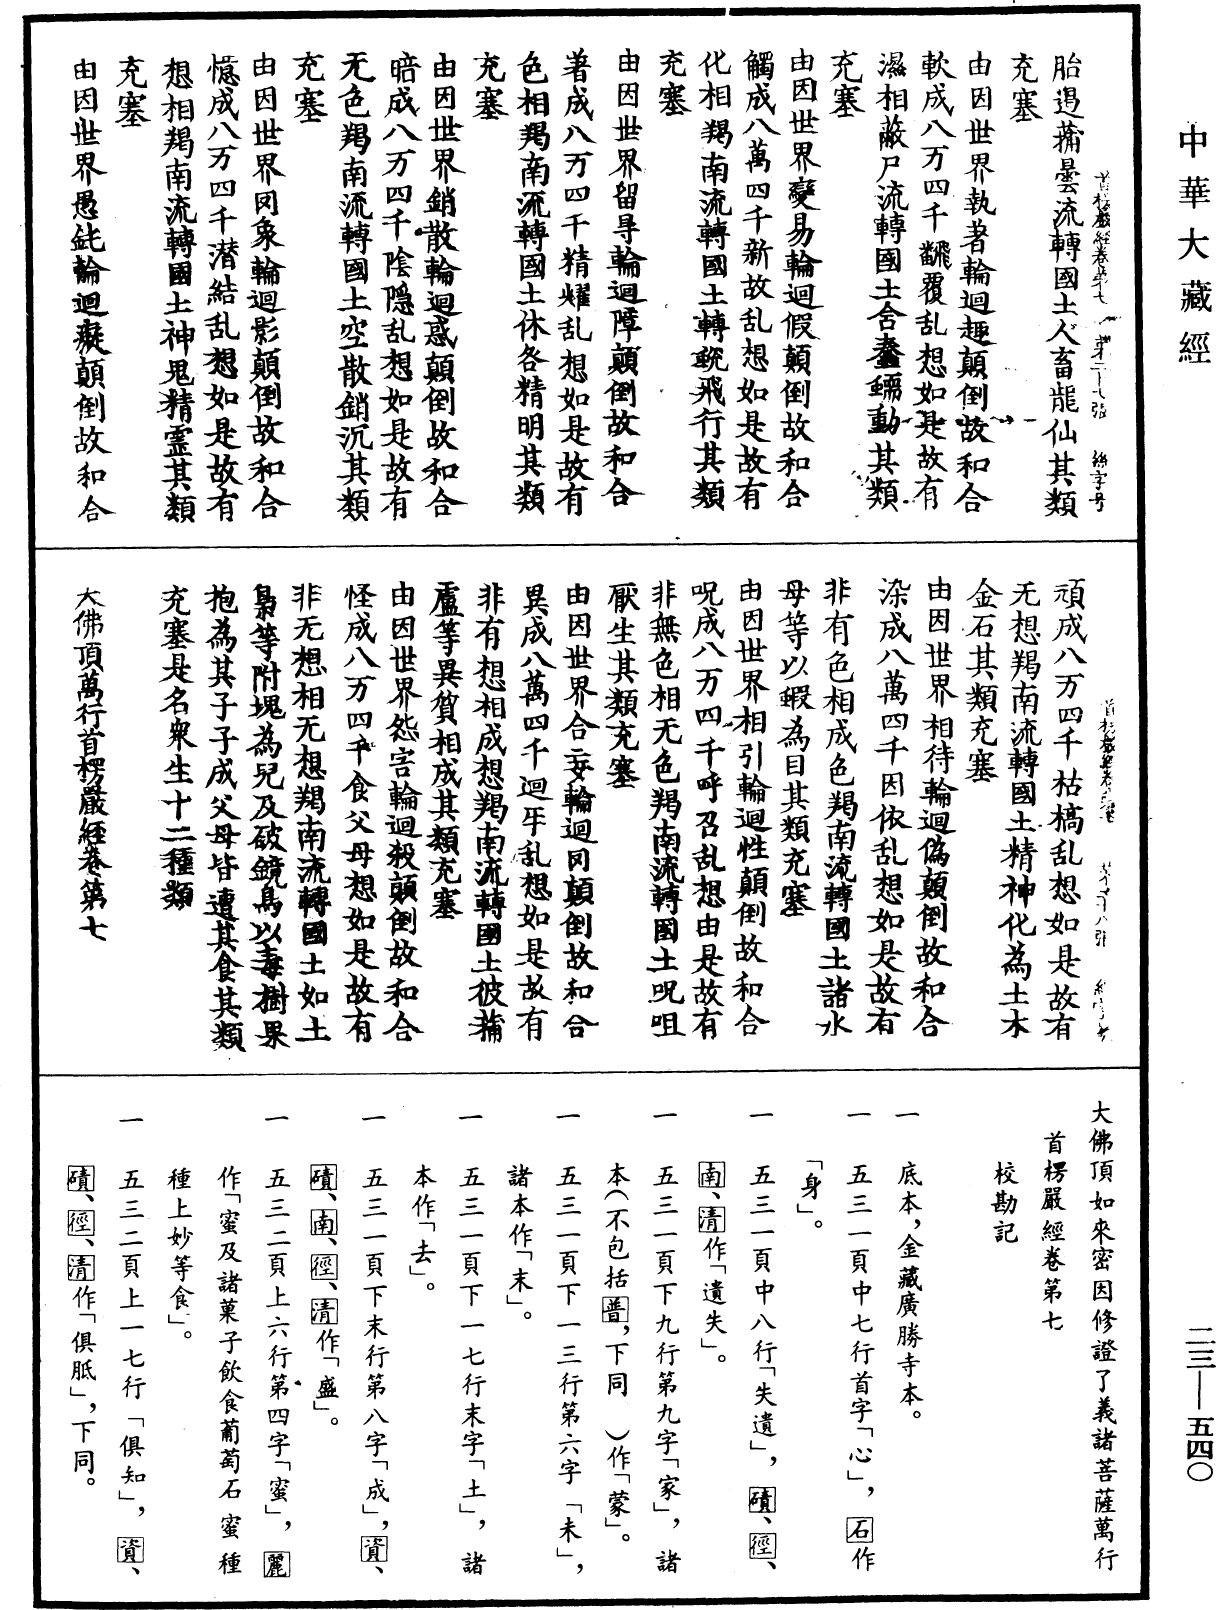 中華大藏經
二三—五四〇
胎遏蒱曇流轉國土人畜龍仙其類
充塞
由因世界執著輪迴趣顛倒故和合
軟成八万四千飜覆乱想如是故有
濕相蔽尸流轉國土含蠢蠕動其類
充塞
由因世界變易輪迴假顛倒故和合
觸成八萬四千新故乱想如是故有
化相羯南流轉國土轉蛻飛行其類
充塞
由因世界留㝵輪迴障顛倒故和合
著成八万四千精耀乱想如是故有
色相羯南流轉國土休各精明其類
充塞
由因世界銷散輪迴惑顛倒故和合
暗成八万四千陰隱乱想如是故有
无色羯南流轉國土空散銷沉其類
充塞
由因世界罔象輪迴影顛倒故和合
憶成八万四千潜結乱想如是故有
想相羯南流轉國土神鬼精靈其類
充塞
由因世界愚鈍輪迴癡顛倒故和合
頑成八万四千枯槁乱想如是故有
无想羯南流轉國土精神化為土木
金石其類充塞
由因世界相待輪迴偽顛倒故和合
染成八萬四千因依乱想如是故有
非有色相成色羯南流轉國土諸水
母等以蝦為目其類充塞
由因世界相引輪迴性顛倒故和合
呪成八万四千呼召乱想由是故有
非無色相无色羯南流轉國土呪咀
厭生其類充塞
由因世界合妄輪迴罔顛倒故和合
異成八萬四千迴㸦乱想如是故有
非有想相成想羯南流轉國土彼蒱
盧等異質相成其類充塞
由因世界怨害輪迴殺顛倒故和合
怪成八万四千食父母想如是故有
非无想相无想羯南流轉國土如土
梟等附塊為兒及破鏡鳥以毒樹果
抱為其子子成父母皆遭其食其類
充塞是名衆生十二種類
大佛頂萬行首楞嚴經卷第七
大佛頂如來密因修證了義諸菩薩萬行
首楞嚴經卷第七
校勘記
一 底本，金藏廣勝寺本。
一 五三一頁中七行首字「心」，石作
「身」。
一 五三一頁中八行「失遺」，磧、徑、
南、清作「遺失」。
一 五三一頁下九行第九字「家」，諸
本（不包括普，下同）作「蒙」。
一 五三一頁下一三行第六字「未」，
諸本作「末」。
一 五三一頁下一七行末字「土」，諸
本作「去」。
一 五三一頁下末行第八字「成」，資、
磧、南、徑、清作「盛」。
一 五三二頁上六行第四字「蜜」，麗
作「蜜及諸菓子飲食葡萄石蜜種
種上妙等食」。
一 五三二頁上一七行「俱知」，資、
磧、徑、清作「俱胝」，下同。